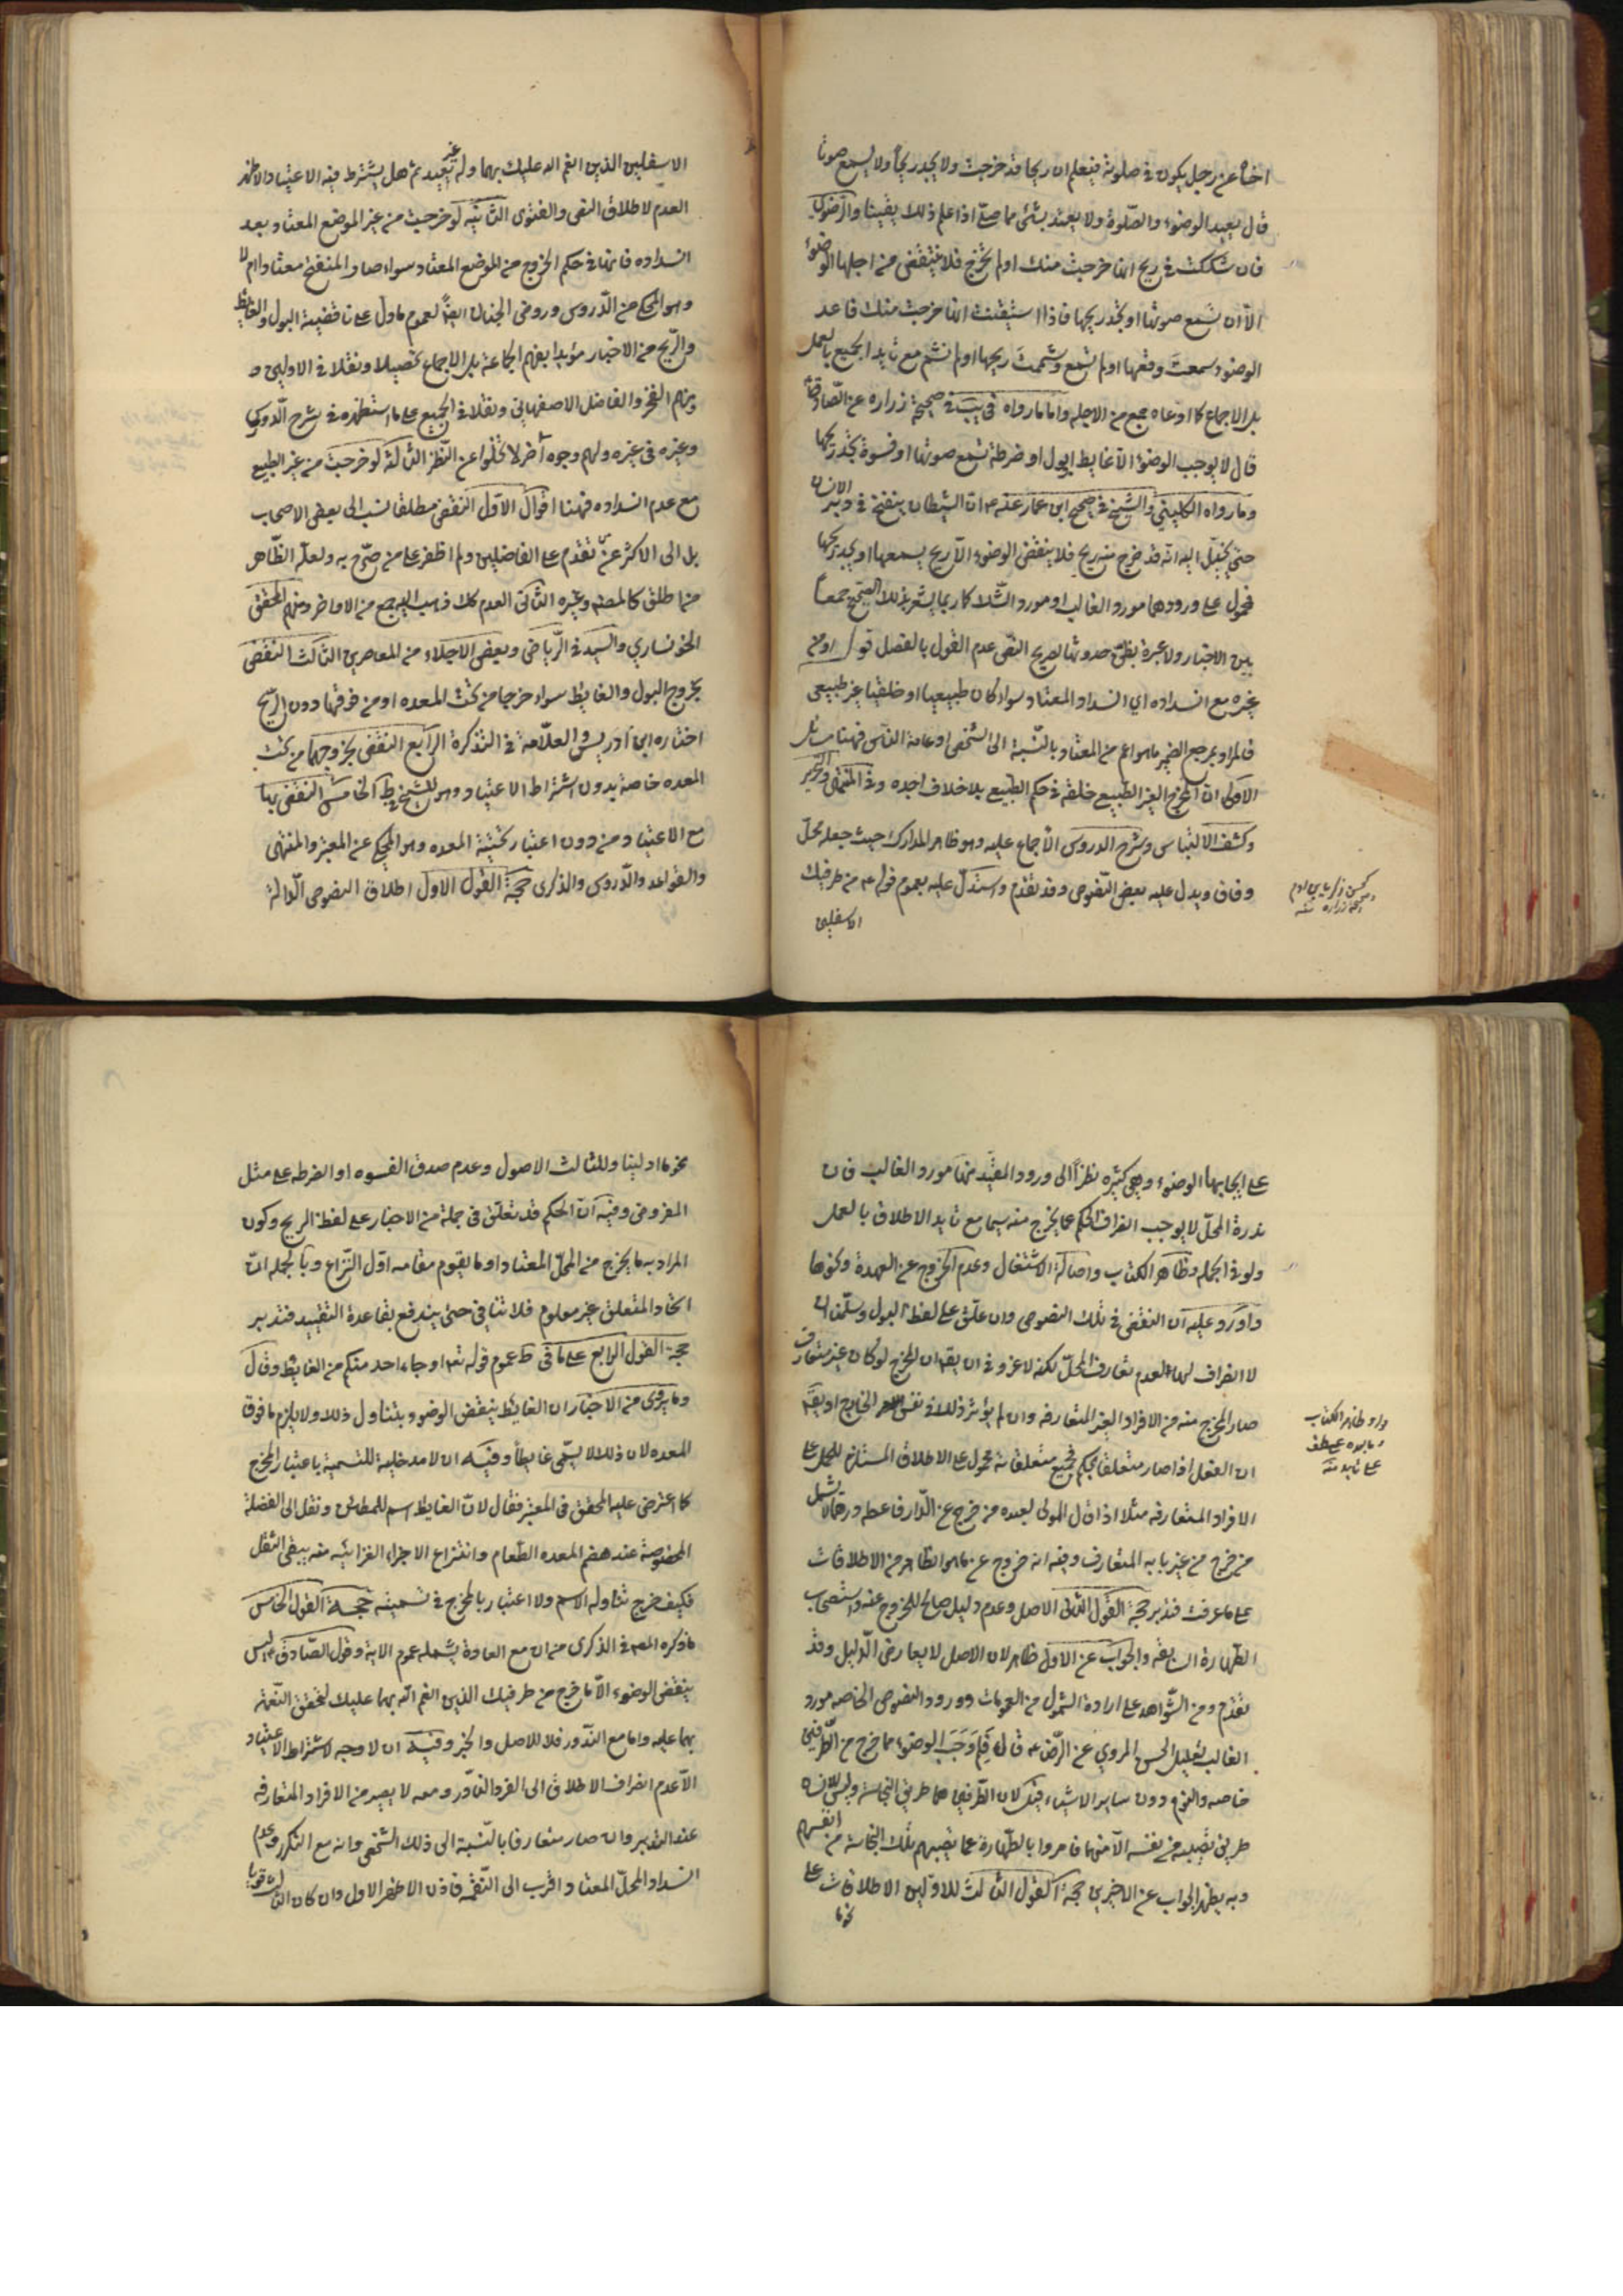 اخاه عن رجل يكون في صلوته فيعلم ان ريحا قد خرجت ولا يجد ريحا ولا يسمع صوتا
قال يعيد الوضوء والصلوة ولا يعتد بشئ مما صلى اذا علم ذلك يقينا والرضوي
فان شككت في ريح انها خرجت منك او لم تخرج فلا تنقض من اجلها الوضوء
الا ان تسمع صوتها او تجد ريحها فاذا استيقنت انها خرجت منك فاعد
الوضوء سمعت وقعها او لم تسمع وشممت ريحها او لم تشم مع تايد الجميع بالعمل
بل الاجماع كما ادعاه جمع من الاجله واما ما رواه في يب في صحيحة زراره عن الصادق
قال لا يوجب الوضوء الا غايط او بول او ضرطة تسمع صوتها او فسوة تجد ريحها
وما رواه الكليني والشيخ في صحيح ابن عمار عنه ع ان الشيطان ينفخ في دبر الانسان
حتى يخيل اليه انه قد خرج منه ريح فلا ينقض الوضوء الا ريح يسمعها او يجد ريحها
فمحمول على ورودهما مورد الغالب او مورد الشك كما ربما يشعر بذلك الصحيح جمعا
بين الاخبار ولا عبرة بظن حدوثها لصريح النص عدم القول بالفصل قوله او من
غيره مع انسداده اي انسداد المعتاد سواء كان طبيعيا او خلقيا غير طبيعي
فالمراد بمرجع الضمير ما هو اعم من المعتاد بالنسبة الى الشخص او عامة الناس فههنا مسائل
الاولى ان المخرج الغير الطبيعي خلقة في حكم الطبيعي بلا خلاف اجده وفي المنتهى والتحرير
وكشف الالتباس وشرح الدروس الاجماع عليه وهو ظاهر المدارك حيث جعله محل
وفاق ويدل عليه بعض النصوص وقد تقدم واستدل عليه بعموم قوله ع من طرفيك
الاسفلين
الاسفلين الذين انعم الله عليك بهما وله غير بعيد ثم هل يشترط فيه الاعتياد والاظهر
العدم لاطلاق النص والفتوى الثانيه لو خرجت من غير الموضع المعتاد بعد
انسداده فانها في حكم الخروج من الموضع المعتاد سواء صار المنفتح معتادا ام لا
وهو المحكي عن الدروس وروض الجنان ايضا لعموم ما دل على ناقضية البول والغايط
والريح من الاخبار مؤيدا بفهم الجماعة بل الاجماع تحصيلا ونقلا في الاولين و
منهم الفخر والفاضل الاصفهاني ونقلا في الجميع على ما استظهره في شرح الدروس
وغيره في غيره ولهم وجوه أخر لا تخلوا عن النظر الثالثة لو خرجت من غير الطبيعي
مع عدم انسداده فههنا اقوال الاول النقض مطلقا نسب الى بعض الاصحاب
بل الى الاكثر عمن تقدم على الفاضلين ولم اظفر على من صرح به ولعله الظاهر
من اطلق كالمصنف وغيره الثاني العدم كك ذهب اليه جمع من الاواخر ومنهم المحقق
الخونساري والسيد في الرياض وبعض الاجلاء من المعاصرين الثالث النقض
بخروج البول والغايط سواء خرجا من تحت المعده او من فوقها دون الريح
اختاره ابن ادريس والعلامة في التذكرة الرابع النقض بخروجهما من تحت
المعده خاصة بدون اشتراط الاعتياد وهو للشيخ في ط الخامس النقض بها
مع الاعتياد من دون اعتبار تحتية المعده وهو المحكي عن المعتبر والمنتهى
والقواعد والدروس والذكرى حجة القول الاول اطلاق النصوص الدالة
على ايجابها الوضوء وهي كثيره نظرا الى ورود المقيد منها مورد الغالب فان
ندرة المحل لا يوجب انصراف الحكم عما يخرج منه سيما مع تايد الاطلاق بالعمل
ولو في الجمله وظاهر الكتاب واصالة الاشتغال وعدم الخروج عن العهدة ونحوها
واورد عليه ان النقض في تلك النصوص وان علق على لفظ البول وسلمنا ان
لا انصراف لهما لعدم تعارف المحل لكنه لا غرو في ان يقه ان المخرج لو كان غير متعارف
صار المخرج منه من الافراد الغير المتعارفه وان لم يؤثر ذلك في نفس الخارج او يقه
ان الفعل اذا صار متعلقا لحكم فجميع متعلقاته محمول على الاطلاق المستلزم للحمل على
الافراد المتعارفه مثلا اذا قال المولى لعبده من خرج عن الدار فاعطه درهما لا يشمل
من خرج من غير بابه المتعارف وفيه انه خروج عن ما هو الظاهر من الاطلاقات
على ما عرفت فتدبر حجة القول الثاني الاصل وعدم دليل صالح للخروج عنه واستصحاب
الطهارة السابقه والجواب عن الاول ظاهر لان الاصل لا يعارض الدليل وقد
تقدم ومن الشواهد على ارادة الشمول من العمومات وورود النصوص الخاصه مورد
الغالب تعليل الحسن المروي عن الرضا ع قال فلم وجب الوضوء مما خرج من الطرفين
خاصه والنوم دون ساير الاشياء قيل لان الطرفين هما طريق النجاسة وليس للانسان
طريق تصيبه من نفسه الا منهما فامروا بالطهارة عما تصيبهم تلك النجاسة من انفسهم
وبه يظهر الجواب عن الاخيرين حجة القول الثالث للاولين الاطلاقات على
نحو ما
نحو ما ادلينا وللثالث الاصول وعدم صدق الفسوه او الضرطه على مثل
المفروض وفيه ان الحكم قد تعلق في جملة من الاخبار على لفظ الريح وكون
المراد به ما يخرج من المحل المعتاد او ما يقوم مقامه اول النزاع وبالجمله ان
اتحاد المتعلق غير معلوم فلا تنافي حتى يندفع بقاعدة التقييد فتدبر
حجة القول الرابع على ما في ط عموم قوله تعه او جاء احد منكم من الغايط وقال
وما يروى من الاخبار ان الغايط ينقض الوضوء يتناول ذلك ولا يلزم ما فوق
المعده لان ذلك لا يسمى غايطا وفيه ان لا مدخلية للتسمية باعتبار المخرج
كما اعترض عليه المحقق في المعتبر فقال لان الغايط اسم للمطمئن ونقل الى الفضلة
المخصوصة عند هضم المعده الطعام وانتزاع الاجزاء الغزائيه منه يبقى الثقل
فكيف خرج تناوله الاسم ولا اعتبار بالمخرج في تسميته حجة القول الخامس
ما ذكره المصه في الذكرى من ان مع العادة يشمله عموم الاية وقول الصادق ع ليس
ينقض الوضوء الا ما خرج من طرفيك الذين انعم الله بهما عليك لتحقق النعمة
بهما عليه واما مع الندور فلا للاصل والخبر وفيه ان لا وجه لاشتراط الاعتياد
الا عدم انصراف الاطلاق الى الفرد النادر ومعه لا يصير من الافراد المتعارفه
عند التدبر وان صار متعارفا بالنسبة الى ذلك الشخص وانه مع التكرر وعدم
انسداد المحل المعتاد اقرب الى النقمة فاذن الاظهر الاول وان كان الثالث قويا
واو ظاهر الكتاب